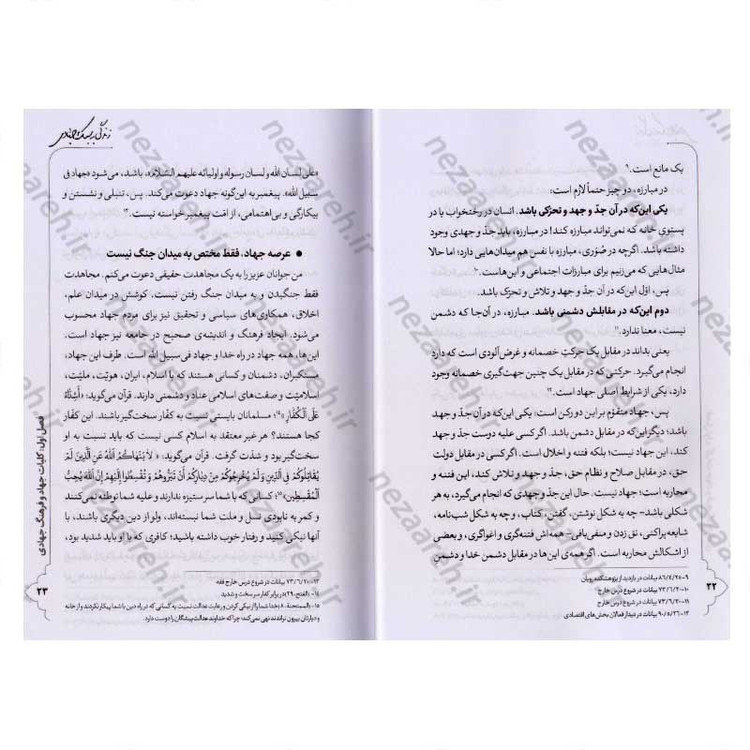 یک مانع است.۹
در مبارزه، دو چیز حتماً لازم است:
یکی این‌که در آن جدّ و جهد و تحرّکی باشد. انسان در رختخواب یا در
پستوی خانه که نمی‌تواند مبارزه کند! در مبارزه، باید جدّ و جهدی وجود
داشته باشد. اگرچه در صُوَری، مبارزه با نفس هم میدان‌هایی دارد؛ اما حالا
مثال‌هایی که می‌زنیم برای مبارزات اجتماعی و این‌هاست.۱۰
پس، اوّل این‌که در آن جدّ و جهد و تلاش و تحرّک باشد.
دوم این‌که در مقابلش دشمنی باشد. مبارزه، در آن‌جا که دشمن
نیست، معنا ندارد.۱۱
یعنی بداند در مقابل یک حرکتِ خصمانه و غرض‌آلودی است که
انجام می‌گیرد. حرکتی که در مقابل یک چنین جهت‌گیری خصمانه وجود
دارد، یکی از شرایط اصلی جهاد است.۱۲
پس، جهاد متقوّم بر این دو رکن است: یکی این‌که در آن جدّ و جهد
باشد؛ دیگر این‌که در مقابل دشمن باشد. اگر کسی علیه دوست جدّ و جهد
کند، این جهاد نیست؛ بلکه فتنه و اخلال است. اگر کسی در مقابل دولت
حق، در مقابل صلاح و نظام حق، جدّ و جهد و تلاش کند، این فتنه و
محاربه است؛ جهاد نیست. حال این جدّ و جهدی که انجام می‌گیرد، به هر
شکلی باشد- چه به شکل نوشتن، گفتن، کتاب، و چه به شکل شب‌نامه،
شایعه پراکنی، نق زدن و منفی‌بافی- همه‌اش فتنه‌گری و اغواگری، و بعضی
از اشکالش محاربه است. اگر همه‌ی این‌ها در مقابل دشمن خدا و دشمنِ
۹-۸۶/۴/۲۵ بیانات در بازدید از پژوهشکده رویان
۱۰-۷۳/۶/۲۰ بیانات در شروع درس خارج
۱۱-۷۳/۶/۲۰ بیانات در شروع درس خارج
۱۲-۹۰/۵/۲۶ بیانات در دیدار فعالان بخش‌های اقتصادی
۲۲
«علی لسان الله و لسان رسوله و اولیائه علیهم السّلام»، باشد، می‌شود «جهاد فی
سبیل الله». پیغمبر به این‌گونه جهاد دعوت می‌کند. پس، تنبلی و نشستن و
بیکارگی و بی‌اهتمامی، از امّت پیغمبر خواسته نیست.۱۳
● عرصه جهاد، فقط مختص به میدان جنگ نیست
من جوانان عزیز را به یک مجاهدت حقیقی دعوت می‌کنم. مجاهدت
فقط جنگیدن و به میدان جنگ رفتن نیست. کوشش در میدان علم،
اخلاق، همکاری‌های سیاسی و تحقیق نیز برای مردم جهاد محسوب
می‌شود. ایجاد فرهنگ و اندیشه‌ی صحیح در جامعه نیز جهاد است.
این‌ها، همه جهاد در راه خدا و جهاد فی سبیل الله است. طرف این جهاد،
مستکبران، دشمنان و کسانی هستند که با اسلام، ایران، هویّت، ملیّت،
اسلامیّت و صفت‌های اسلامی عناد و دشمنی دارند. قرآن می‌گوید: «أَشِدَّاءُ
عَلَى الْكُفَّارِ»۱۴؛ مسلمانان بایستی نسبت به کفّار سخت‌گیر باشند. این کفّار
کجا هستند؟ هر غیر معتقد به اسلام کسی نیست که باید نسبت به او
سخت‌گیر بود و شدّت گرفت. قرآن می‌گوید: «لا يَنْهَاكُمُ اللهُ عَنِ الَّذِينَ لَمْ
يُقَاتِلُوكُمْ فِي الدِّينِ وَلَمْ يُخْرِجُوكُمْ مِنْ دِيَارِكُمْ أَنْ تَبَرُّوهُمْ وَتُقْسِطُوا إِلَيْهِمْ إِنَّ اللهَ يُحِبُّ
الْمُقْسِطِينَ»۱۵؛ کسانی که با شما سر ستیزه ندارند و علیه شما توطئه نمی‌کنند
و کمر به نابودی نسل و ملت شما نبسته‌اند، ولو از دین دیگری باشند، با
آنها نیکی کنید و رفتار خوب داشته باشید؛ کافری که با او باید شدید بود،
۱۳-۷۳/۶/۲۰ بیانات در شروع درس خارج فقه
۱۴- الفتح:۲۹؛ در برابر کفار سرسخت و شدید
۱۵- الممتحنة:۸؛ خدا شما را از نیکی کردن و رعایت عدالت نسبت به کسانی که در راه دین با شما پیکار نکردند و از خانه
و دیارتان بیرون نراندند نهی نمی‌کند؛ چرا که خداوند عدالت پیشگان را دوست دارد.
۲۳
فصل اول: کلیات جهاد و فرهنگ جهادی
nezaareh.ir